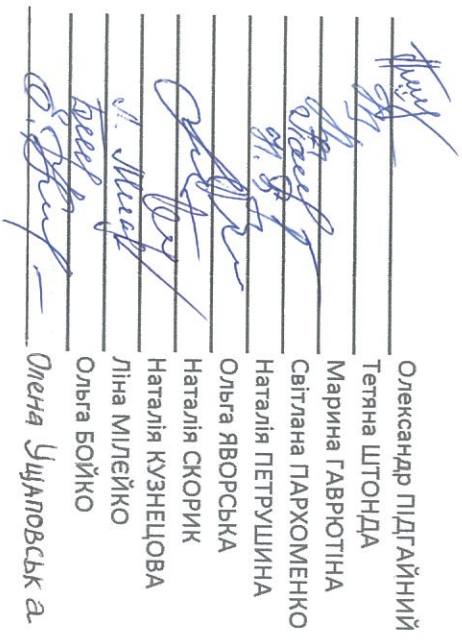 Олександр ПІДГАЙНИЙ
Тетяна ШТОНДА
Марина ГАВРЮТІНА
Світлана ПАРХОМЕНКО
Наталія ПЕТРУШИНА
Ольга ЯВОРСЬКА
Наталія СКОРИК
Наталія КУЗНЕЦОВА
Ліна МІЛЕЙКО
Ольга БОЙКО
Олена УЩАПОВСЬКА